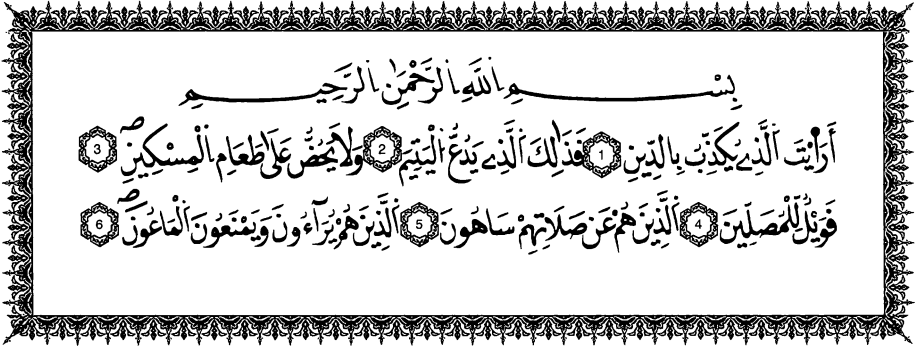 بِسْمِ اِللَّهِ اِلرَّحْمَٰنِ اِلرَّحِيمِ
أَرَٰيْتَ اَلَّذِے يُكَذِّبُ بِالدِّينِ 1 فَذَٰلِكَ اَلَّذِے يَدُعُّ اُلْيَتِيمَ 2 وَلَا يَحُضُّ عَلَىٰ طَعَامِ اِلْمِسْكِينِۖ 3
فَوَيْلٌ لِّلْمُصَلِّينَ 4 اَلَّذِينَ هُمْ عَن صَلَاتِهِمْ سَاهُونَ 5 اَلَّذِينَ هُمْ يُرَآءُونَ وَيَمْنَعُونَ اَلْمَاعُونَۖ 6